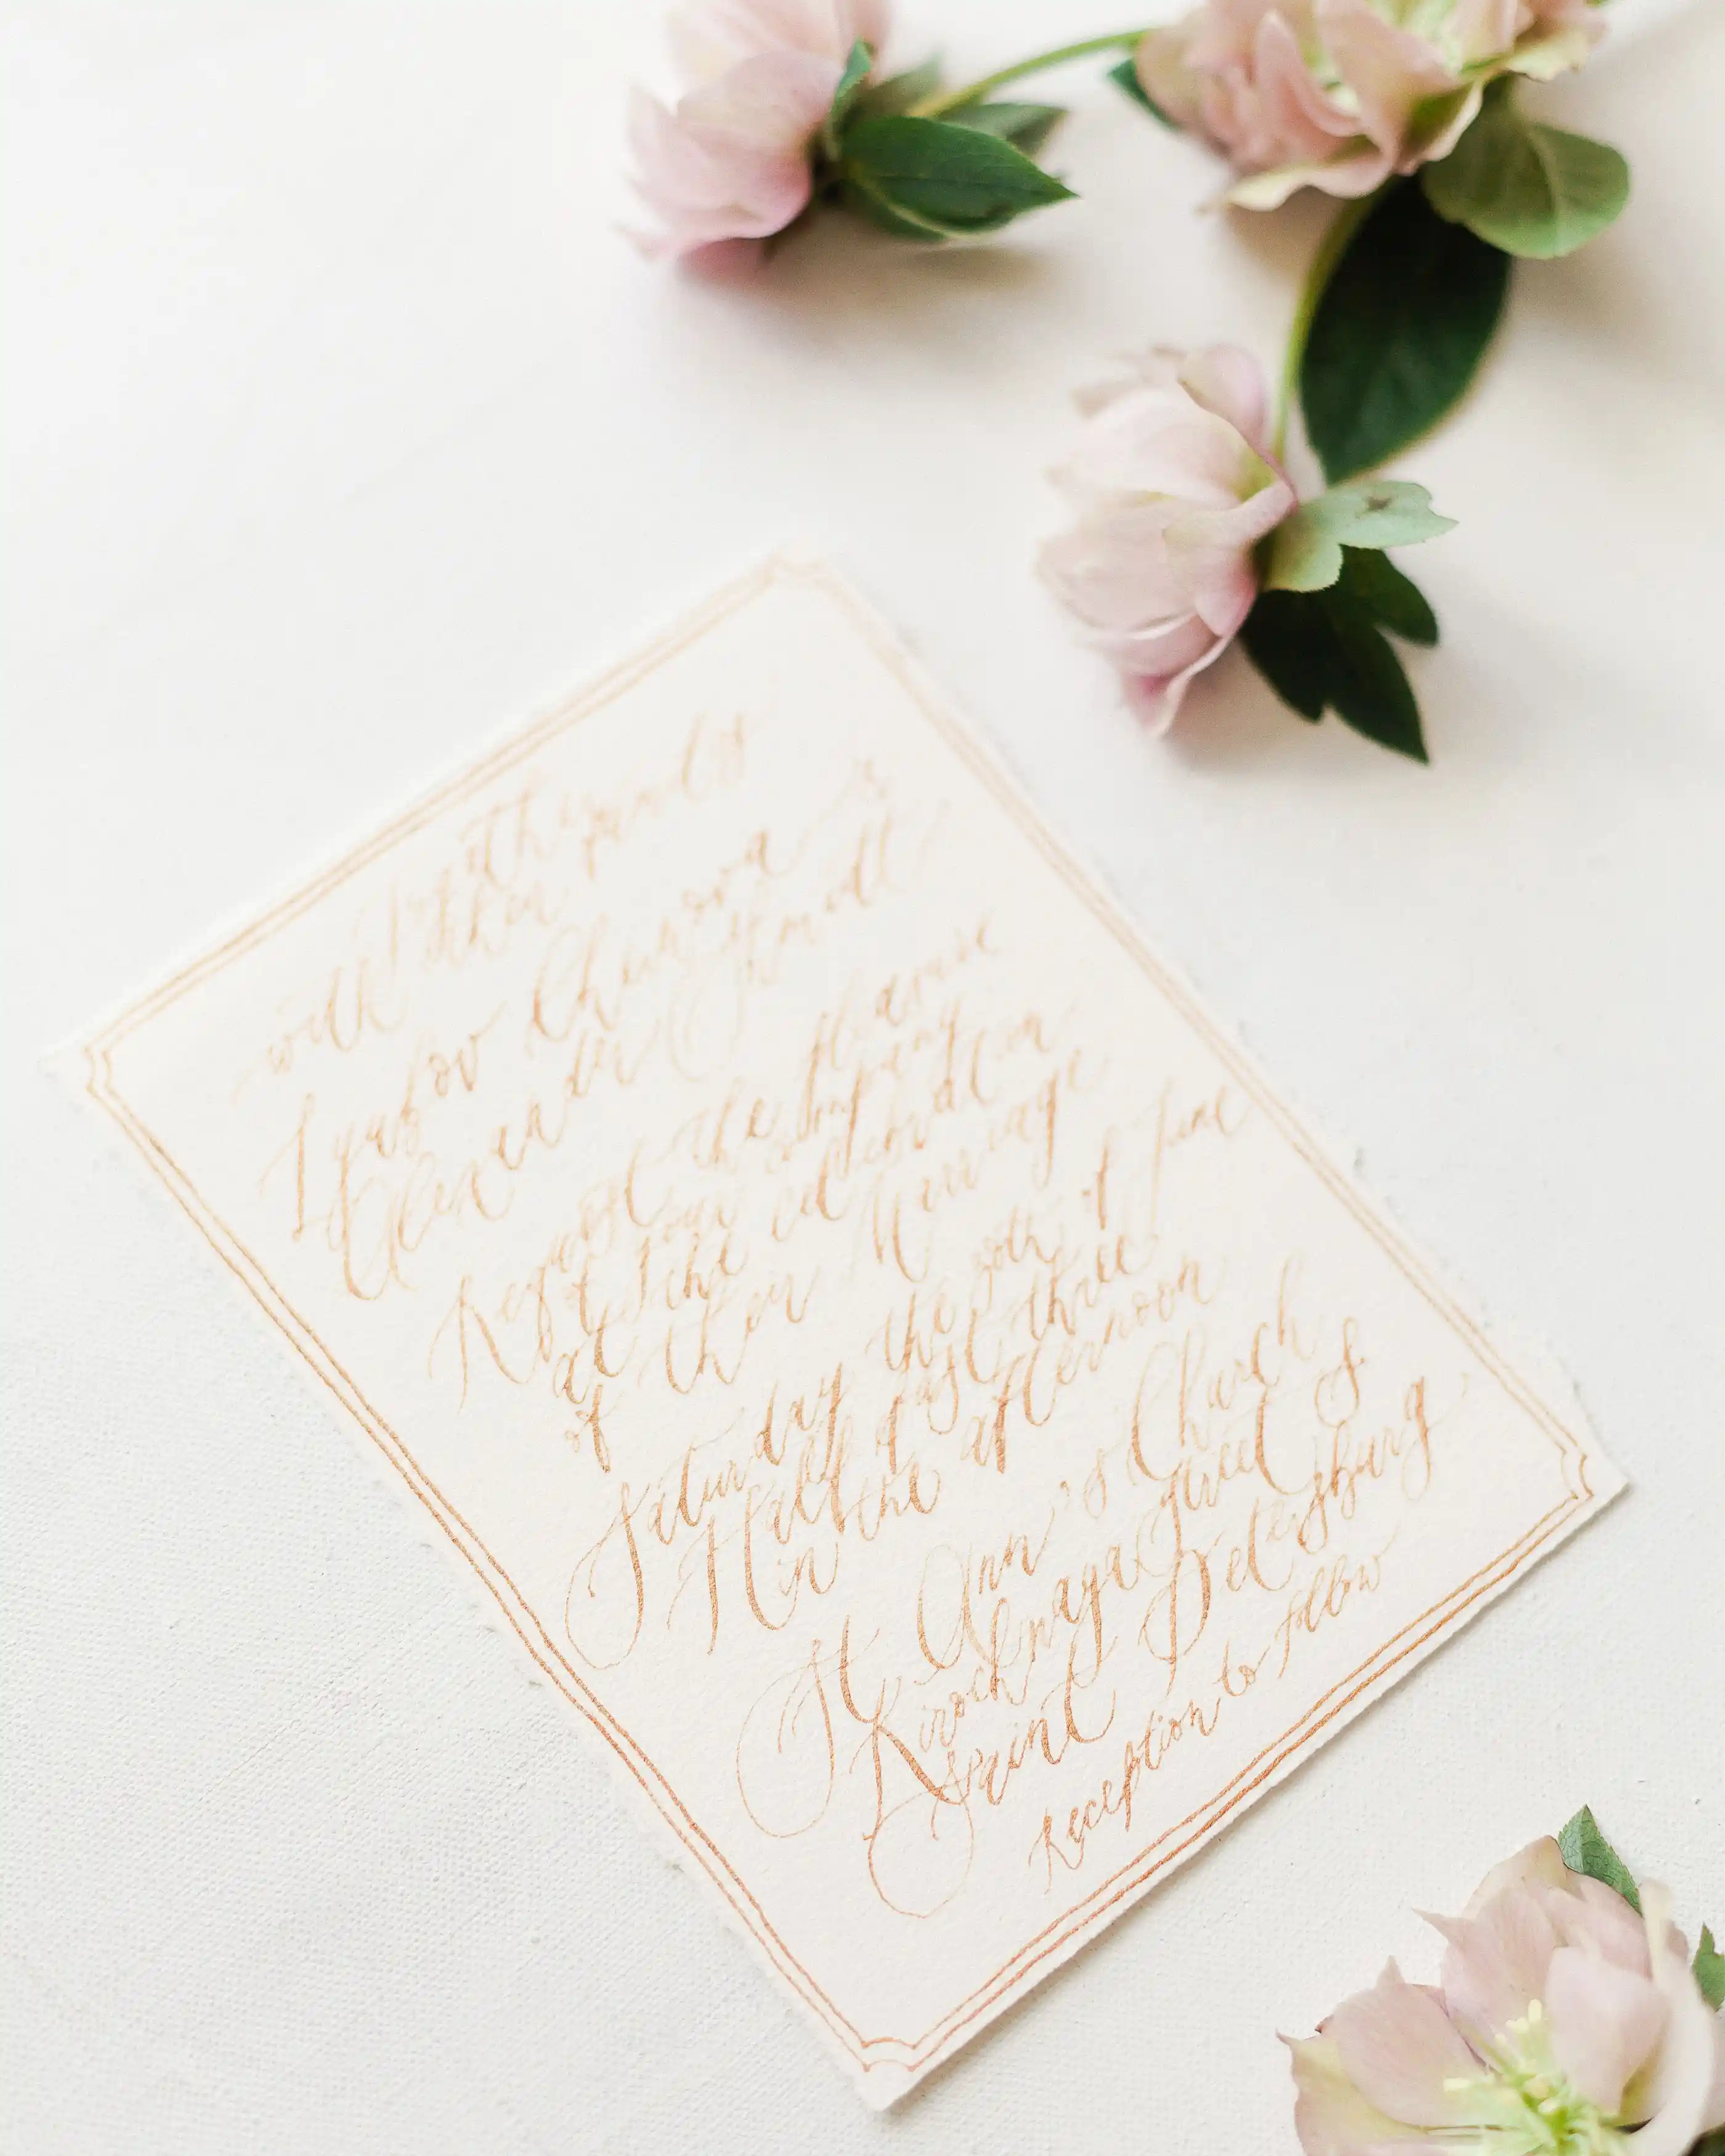 with their
parents
Lyubov Chernova &
Alexander
Request the pleasure
of your company
at the celebration
of their Marriage
Saturday the 20th of June
Half past three
in the afternoon
St Ann's Church
Kirochnaya Street 8
Saint Petersburg
Reception to follow